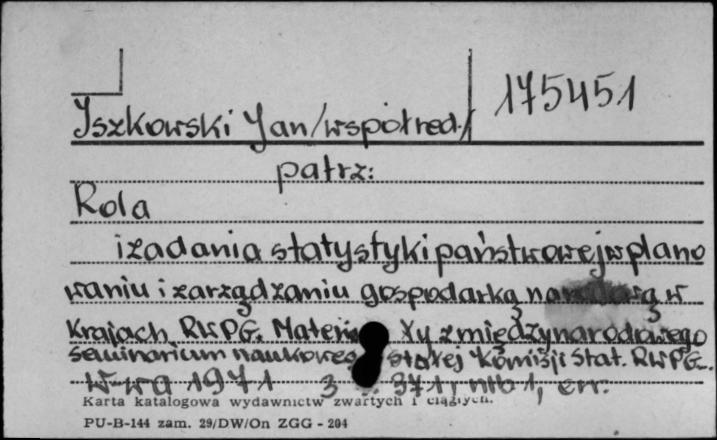 175451
Iszkowski Jan /współred./
patrz:
Rola
i zadania statystyki państwowej w plano
waniu i zarządzaniu gospodarką narodową w
Krajach RWPG. Materia xy z międzynarodowego
seminarium naukoweg stałej Komisji Stat. RWPG.
W-wa 1971 3 371, nlb 1, err.
Karta katalogowa wydawnictw zwartych i ciągłych.
PU-B-144 zam. 29/DW/On ZGG - 204